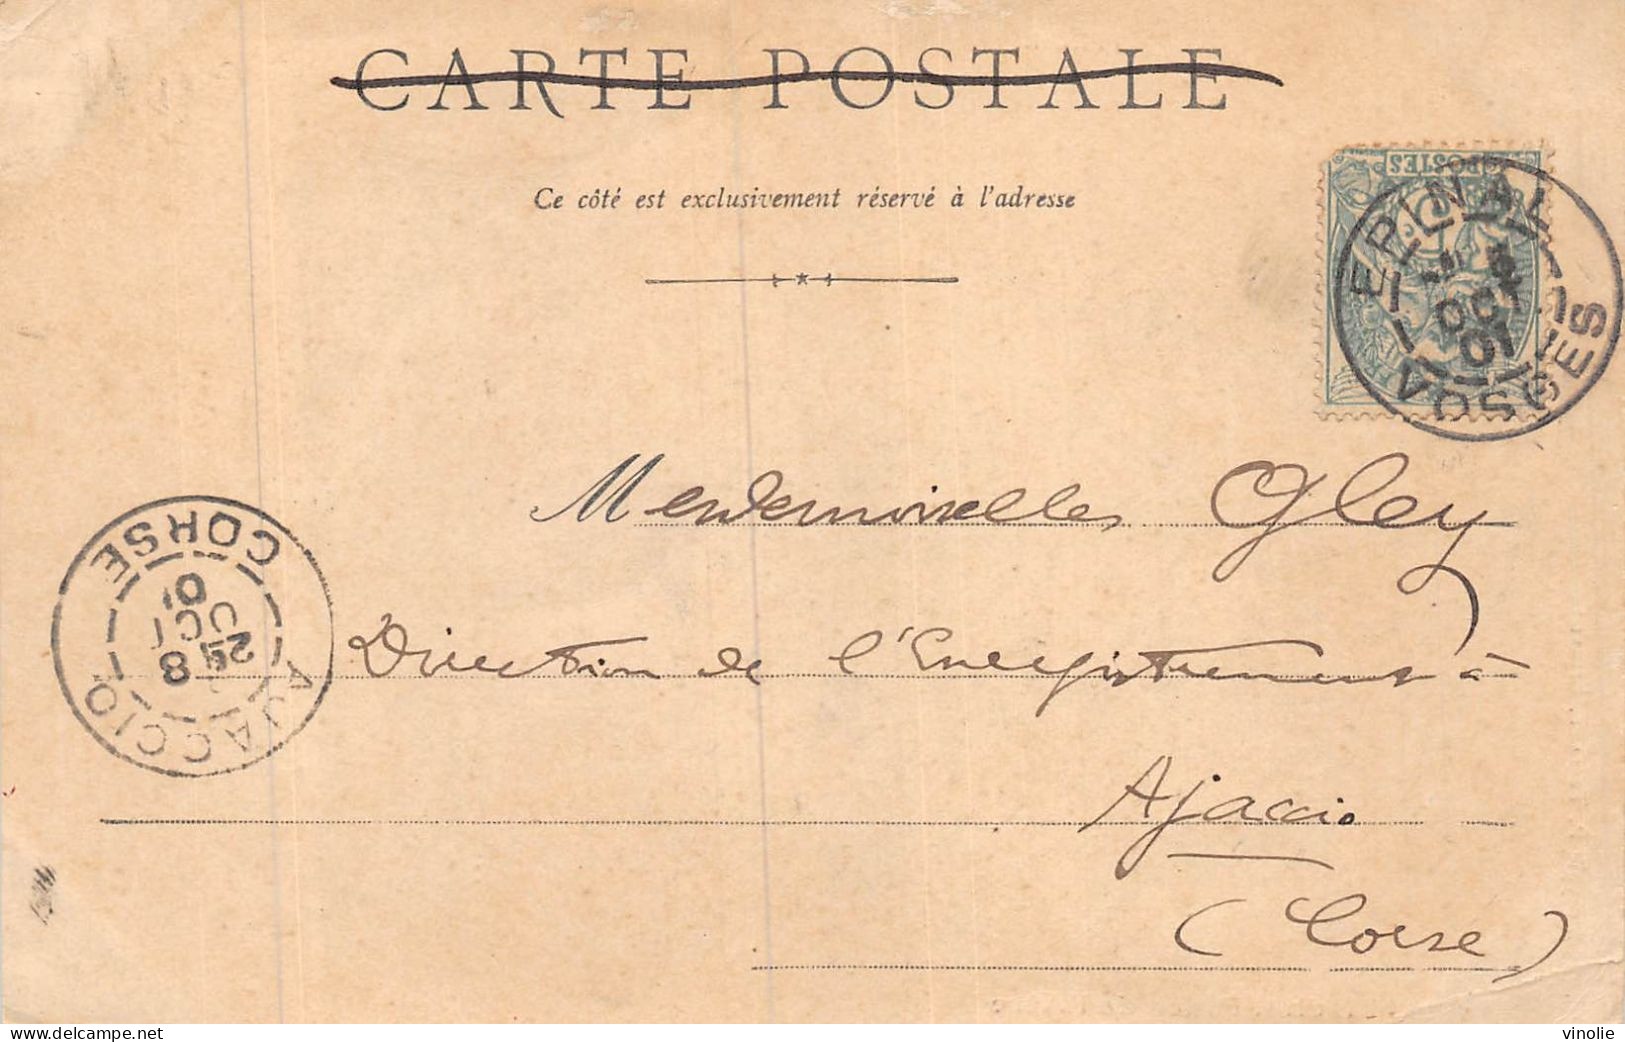 CARTE POSTALE
Ce côté est exclusivement réservé à l'adresse
POSTES
EPINAL
OCT
01
VOSGES
Mesdemoiselles Gley
Direction de l'Enregistrement à
Ajaccio
(Corse)
AJACCIO
8
OCT
01
CORSE
delcampe.net
vinolie